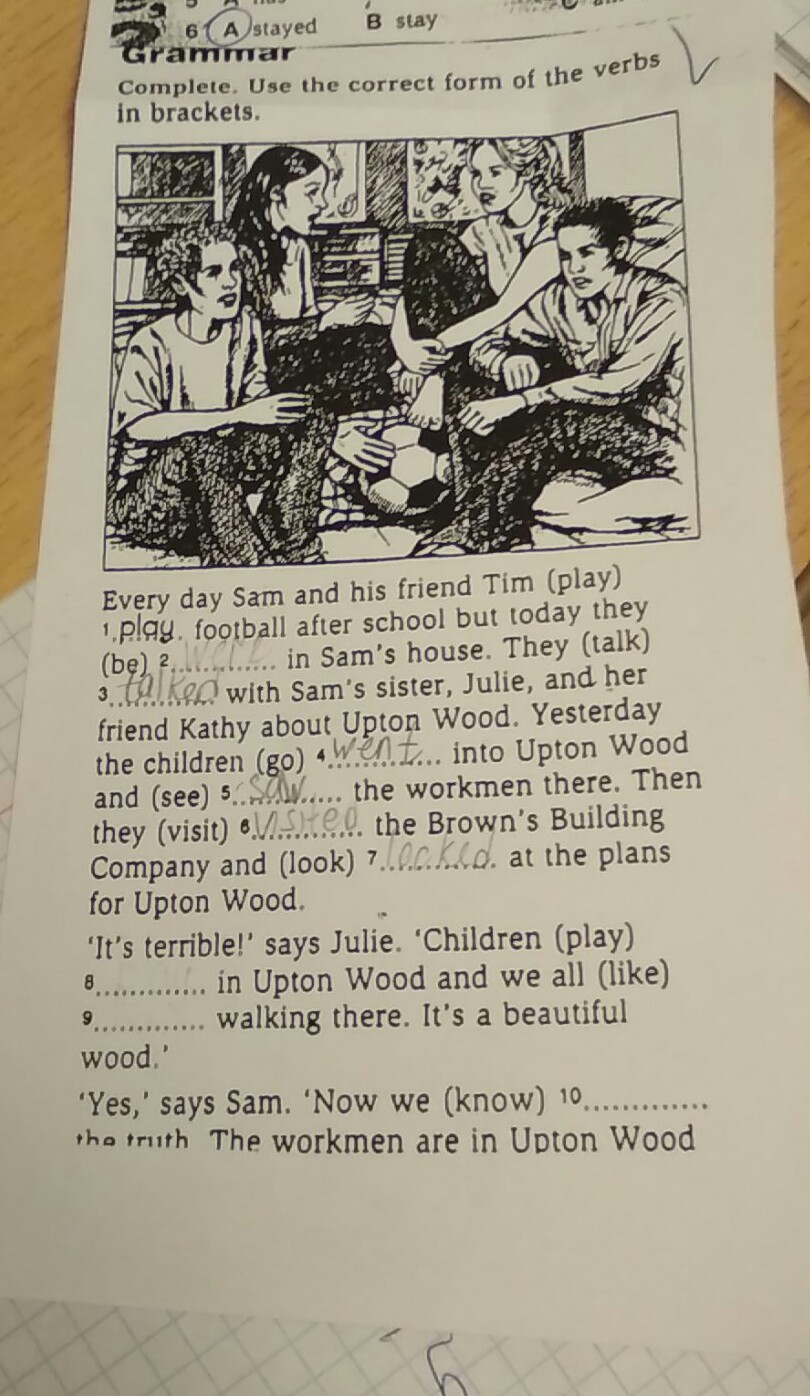 6 A stayed B stay
Grammar
Complete. Use the correct form of the verbs
in brackets.
Every day Sam and his friend Tim (play)
1.play. football after school but today they
(be) 2............. in Sam's house. They (talk)
3.talked with Sam's sister, Julie, and her
friend Kathy about Upton Wood. Yesterday
the children (go) 4.went... into Upton Wood
and (see) 5..saw..... the workmen there. Then
they (visit) 6............. the Brown's Building
Company and (look) 7............. at the plans
for Upton Wood.
'It's terrible!' says Julie. 'Children (play)
8............. in Upton Wood and we all (like)
9............. walking there. It's a beautiful
wood.'
'Yes,' says Sam. 'Now we (know) 10.............
the truth The workmen are in Upton Wood